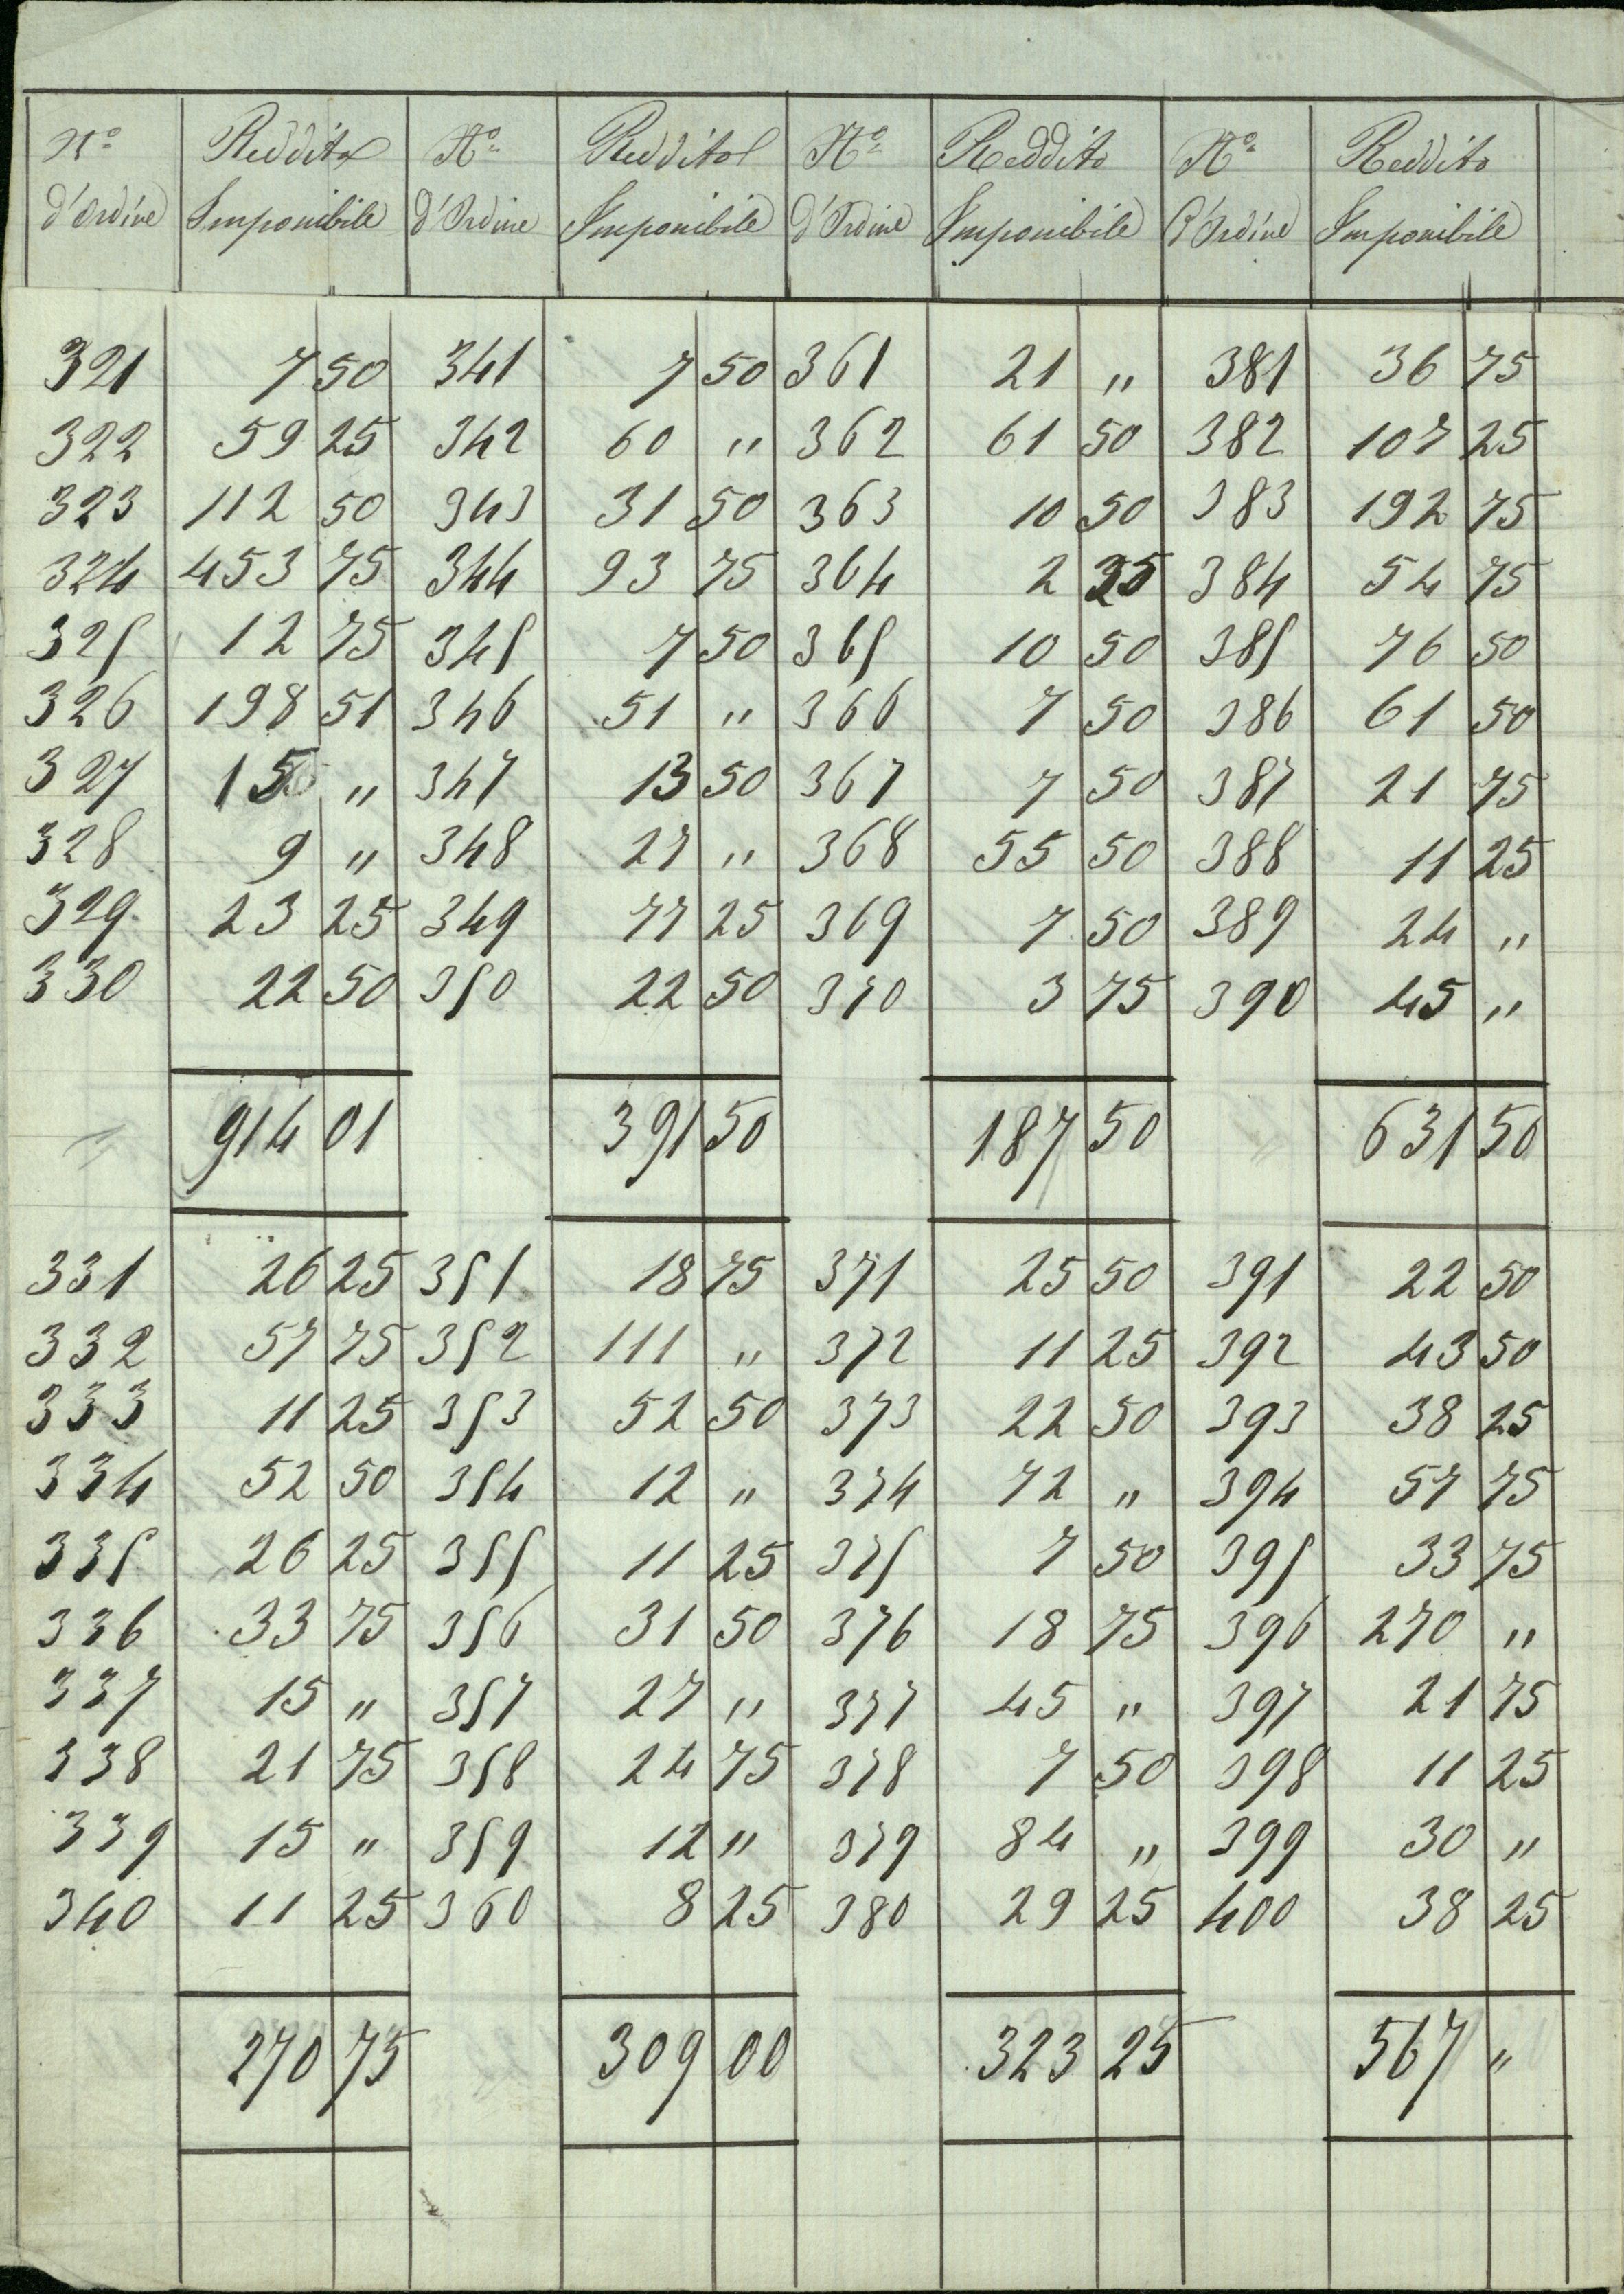 N° Reddito N° Reddito N° Reddito N° Reddito
d'Ordine Imponibile d'Ordine Imponibile d'Ordine Imponibile d'Ordine Imponibile
321 7 50 341 7 50 361 21 " 381 36 75
322 59 25 342 60 " 362 61 50 382 107 25
323 112 50 343 31 50 363 10 50 383 192 75
324 453 75 344 93 75 364 2 25 384 54 75
325 12 75 345 7 50 365 10 50 385 76 50
326 198 51 346 51 " 366 7 50 386 61 50
327 15 " 347 13 50 367 7 50 387 21 75
328 9 " 348 27 " 368 55 50 388 11 25
329 23 25 349 77 25 369 7 50 389 24 "
330 22 50 350 22 50 370 3 75 390 45 "
914 01 391 50 187 50 631 50
331 26 25 351 18 75 371 25 50 391 22 50
332 57 75 352 111 " 372 11 25 392 43 50
333 11 25 353 52 50 373 22 50 393 38 25
334 52 50 354 12 " 374 72 " 394 57 75
335 26 25 355 11 25 375 7 50 395 33 75
336 33 75 356 31 50 376 18 75 396 270 "
337 15 " 357 27 " 377 45 " 397 21 75
338 21 75 358 24 75 378 7 50 398 11 25
339 15 " 359 12 " 379 84 " 399 30 "
340 11 25 360 8 25 380 29 25 400 38 25
270 75 309 00 323 25 567 "